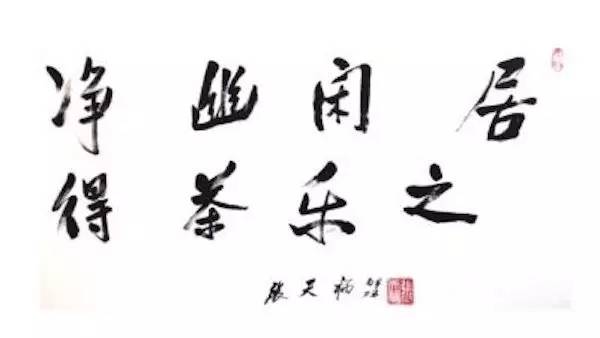 净幽闲居
得茶乐之
張天福